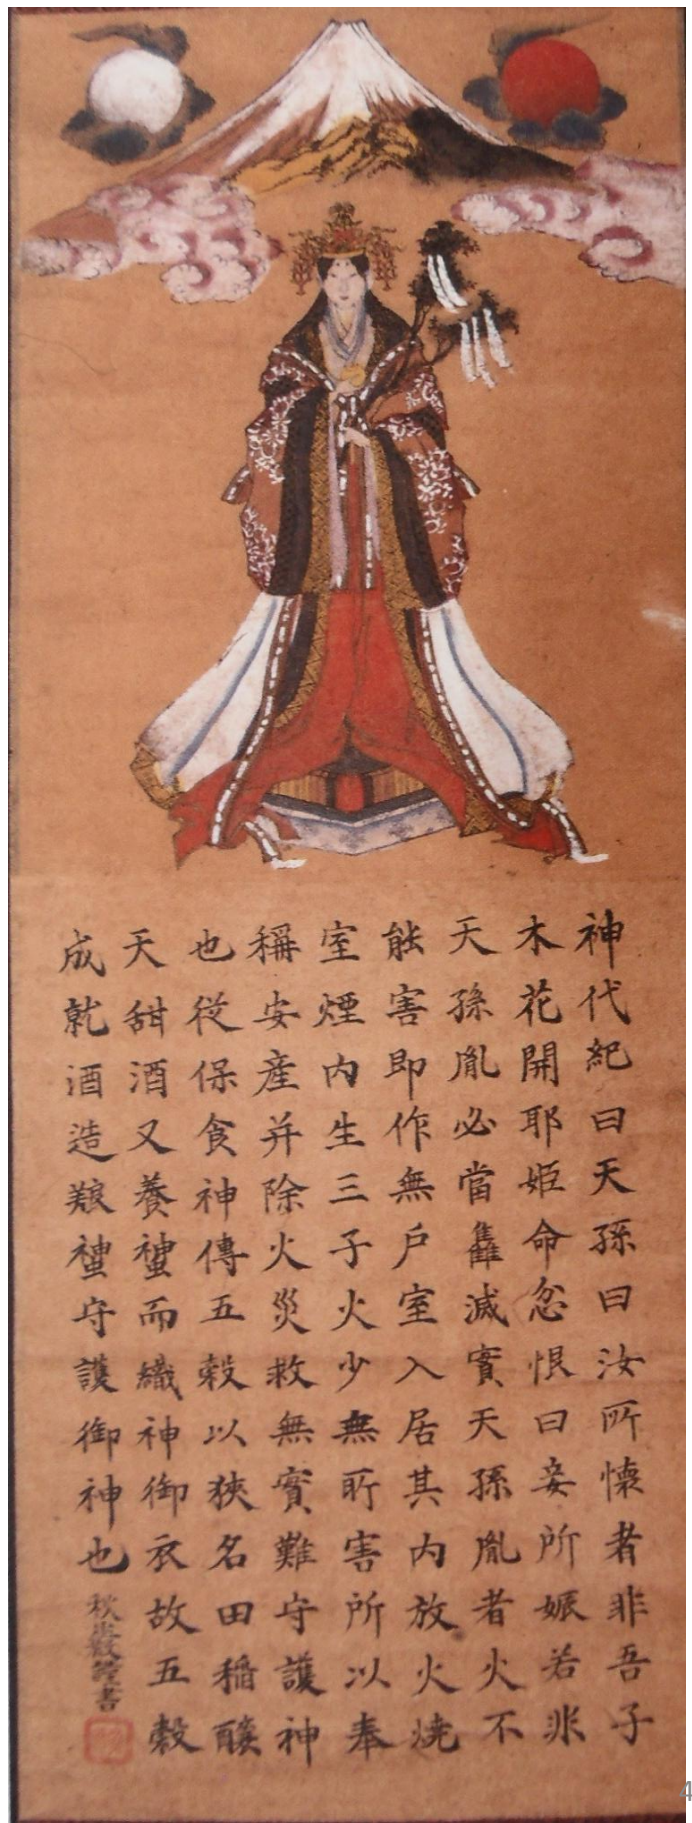 神代紀曰天孫曰汝所懐者非吾子
木花開耶姫命忿恨曰妾所娠若非
天孫胤必當雥滅實天孫胤者火不
能害即作無戸室入居其内放火焼
室煙内生三子火少無所害所以奉
稱安産并除火災救無實難守護神
也従保食神傳五穀以狹名田稲醸
天甜酒又養蠶而織神御衣故五穀
成就酒造蠶守護御神也
書
4